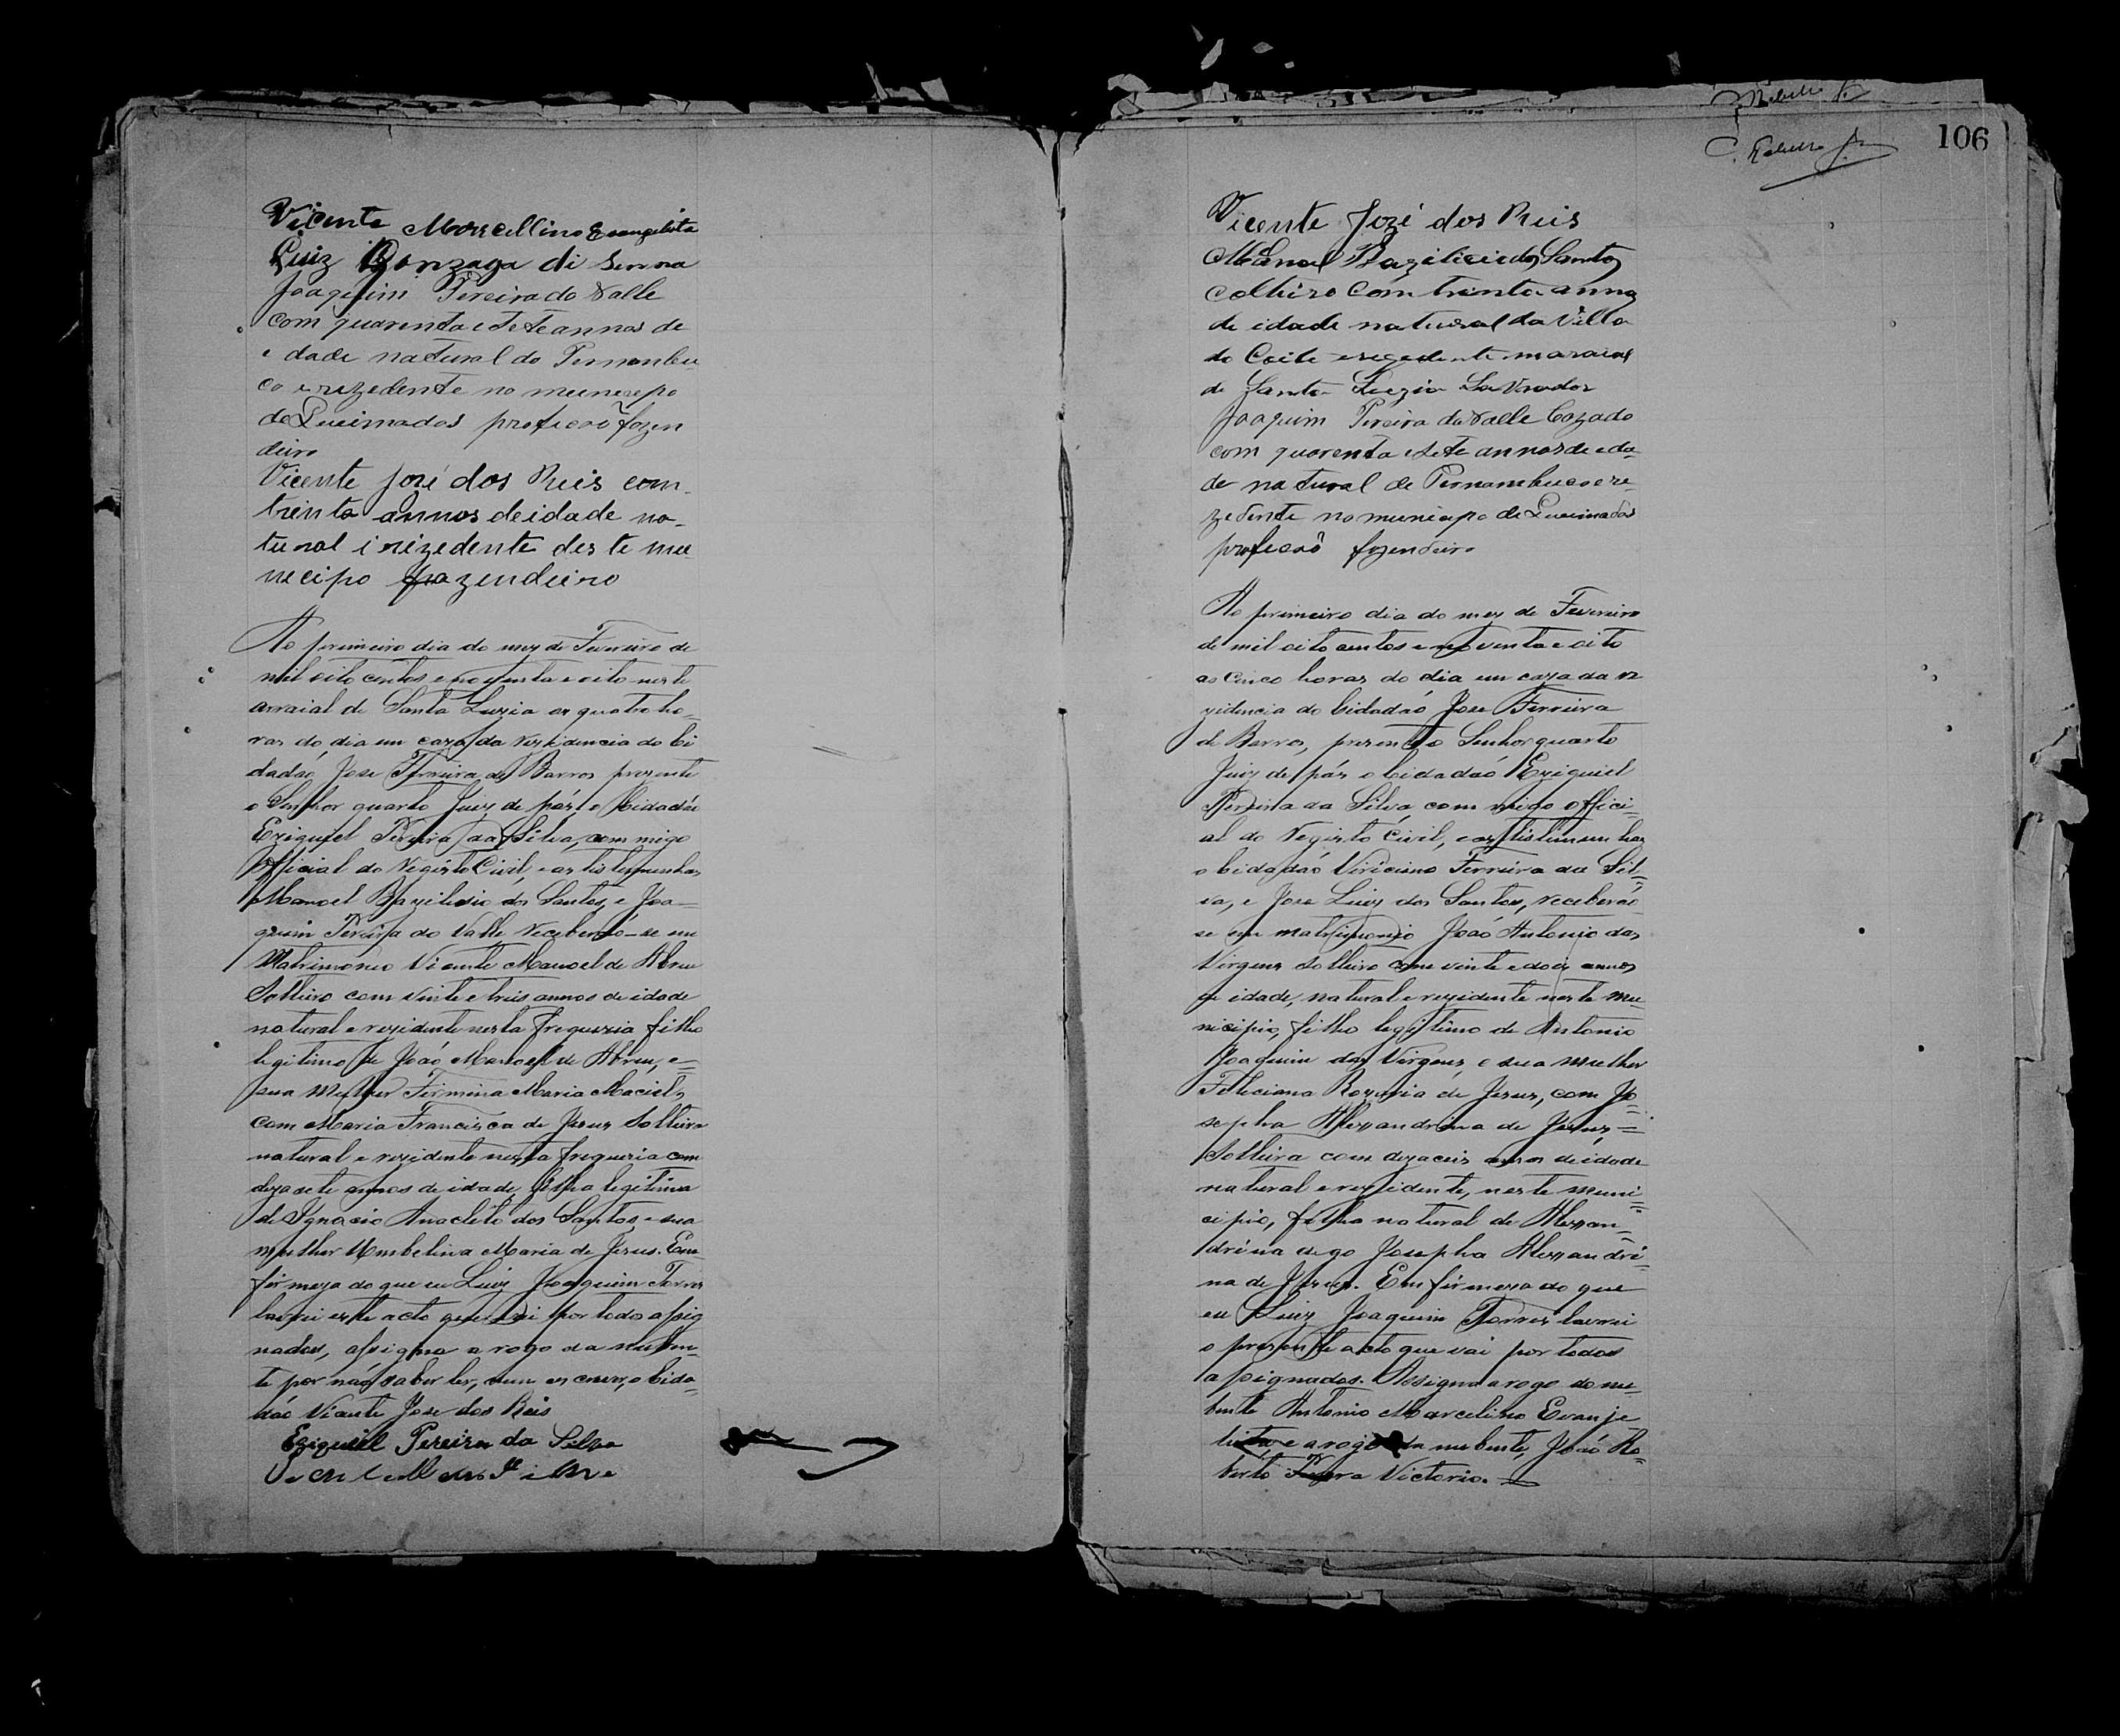 Vicente Marcellino Evangelista
Luiz Gonzaga di Senna
Joaquim Pereira do Valle
com quarenta e sete annos de
idade natural do Pernambu
co e rezedente no municepo
de Queimados proficaõ fazen
deiro
Vicente Jozé dos Reis com
trenta annos de idade na-
tural i rizedente deste mu
necipo fazendeiro
Ao primeiro dia do mez de Fevereiro de
mil oito centos e noventa e oito neste
arraial de Santa Luzia as quatro ho-
ras do dia em caza da rezidencia do Ci
dadaó Jose Ferreira de Barros prezente
o Senhor quarto Juiz de páz o Cidadão
Eziquiel Pereira da Silva, com migo
Official do Registo Civil, e as tistemunhas
Manoel Bazilicio dos Santos, e Joa-
quim Pereira do Valle receberaó-se em
Matrimonio Vicente Manoel de Abreu
Solteiro com vinte e treis annos de idade
natural e rezidente nesta freguezia filho
legitimo de Joaó Manoel de Abreu, e=
sua mulher Firmina Maria Maciel,
com Maria Francisca de Jesus Solteira
natural e rezidente nesta freguezia com
dezasete annos de idade, filha legitima
de Ignacio Anacleto dos Santos e sua
mulher Umbelina Maria de Jesus. Em
firmeza do que eu Luiz Joaquim Torres
lavrei este acto que vai por todo assig
nados, assigna a rogo da nuben-
te por naó saber ler, nem escrever, o Cida-
daó Vicente Jose dos Reis
Eziquiel Pereira da Silva
106
Vicente Jozé dos Reis
Manoel Bazilicio dos Santos
Colteiro Com trenta annos
de idade natural da Villa
do Coite e rezedente no araial
de Santa Luzia Lavrador
Joaquim Pereira do Valle Cazado
com quarenta e sete annos de eda
de natural de Pernambuco e re
zedente no municipo de Queimados
proficaõ fazendeiro
Ao primeiro dia do mez de Fevereiro
de mil oito centos e noventa e oito
as cinco horas do dia em caza da re
zidencia do Cidadaó Jose Ferreira
de Barros, prezente o Senhor quarto
Juiz de páz o Cidadaó Eziquiel
Pereira da Silva, com migo offici-
al do Registo Civil, e as tistemunhas
o Cidadaó Viricimo Ferreira da Sil=
va, e Jose Luiz dos Santos, receberaó
se em matrimonio Joaó Antonio das
Virgens Solteiro com vinte e dois annos
de idade, natural e rezidente neste mu=
nicipio, filho legitimo de Antonio
Joaquim das Virgens, e sua mulher
Feliciana Rozenia de Jesus, com Jo=
sepha Alexandrina de Jesus,=
Solteira com dezaceis annos de idade
natural e rezidente, neste muni=
cipio, filha natural de Alexan=
drina digo Josepha Alexandri=
na de Jesus. Em firmeza do que
eu Luiz Joaquim Torres lavrei
o prezente acto que vai por todos
assignados. Assigna a rogo do nu=
bente Antonio Marcelino Evanje
lista e a rogo da nubente, Joaó Ro=
berto Victorio.